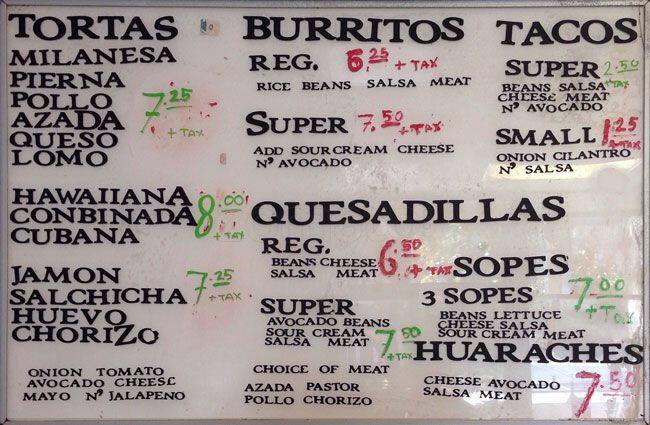 TORTAS
MILANESA
PIERNA
POLLO
AZADA
QUESO
LOMO
7.25
+ TAX
HAWAIIANA
CONBINADA
CUBANA
8.00
+ TAX
JAMON
SALCHICHA
HUEVO
CHORIZO
7.25
+ TAX
ONION TOMATO
AVOCADO CHEESE
MAYO N' JALAPENO
BURRITOS
REG. 6.25 + TAX
RICE BEANS SALSA MEAT
SUPER 7.50 + TAX
ADD SOURCREAM CHEESE
N' AVOCADO
QUESADILLAS
REG. 6.50 + TAX
BEANS CHEESE
SALSA MEAT
SUPER
AVOCADO BEANS
SOUR CREAM
SALSA MEAT
7.50
+ TAX
CHOICE OF MEAT
AZADA PASTOR
POLLO CHORIZO
TACOS
SUPER 2.50 + TAX
BEANS SALSA
CHEESE MEAT
N' AVOCADO
SMALL 1.25 + TAX
ONION CILANTRO
N' SALSA
SOPES
3 SOPES 7.00
BEANS LETTUCE
CHEESE SALSA
SOUR CREAM MEAT
HUARACHES
CHEESE AVOCADO
SALSA MEAT
7.50